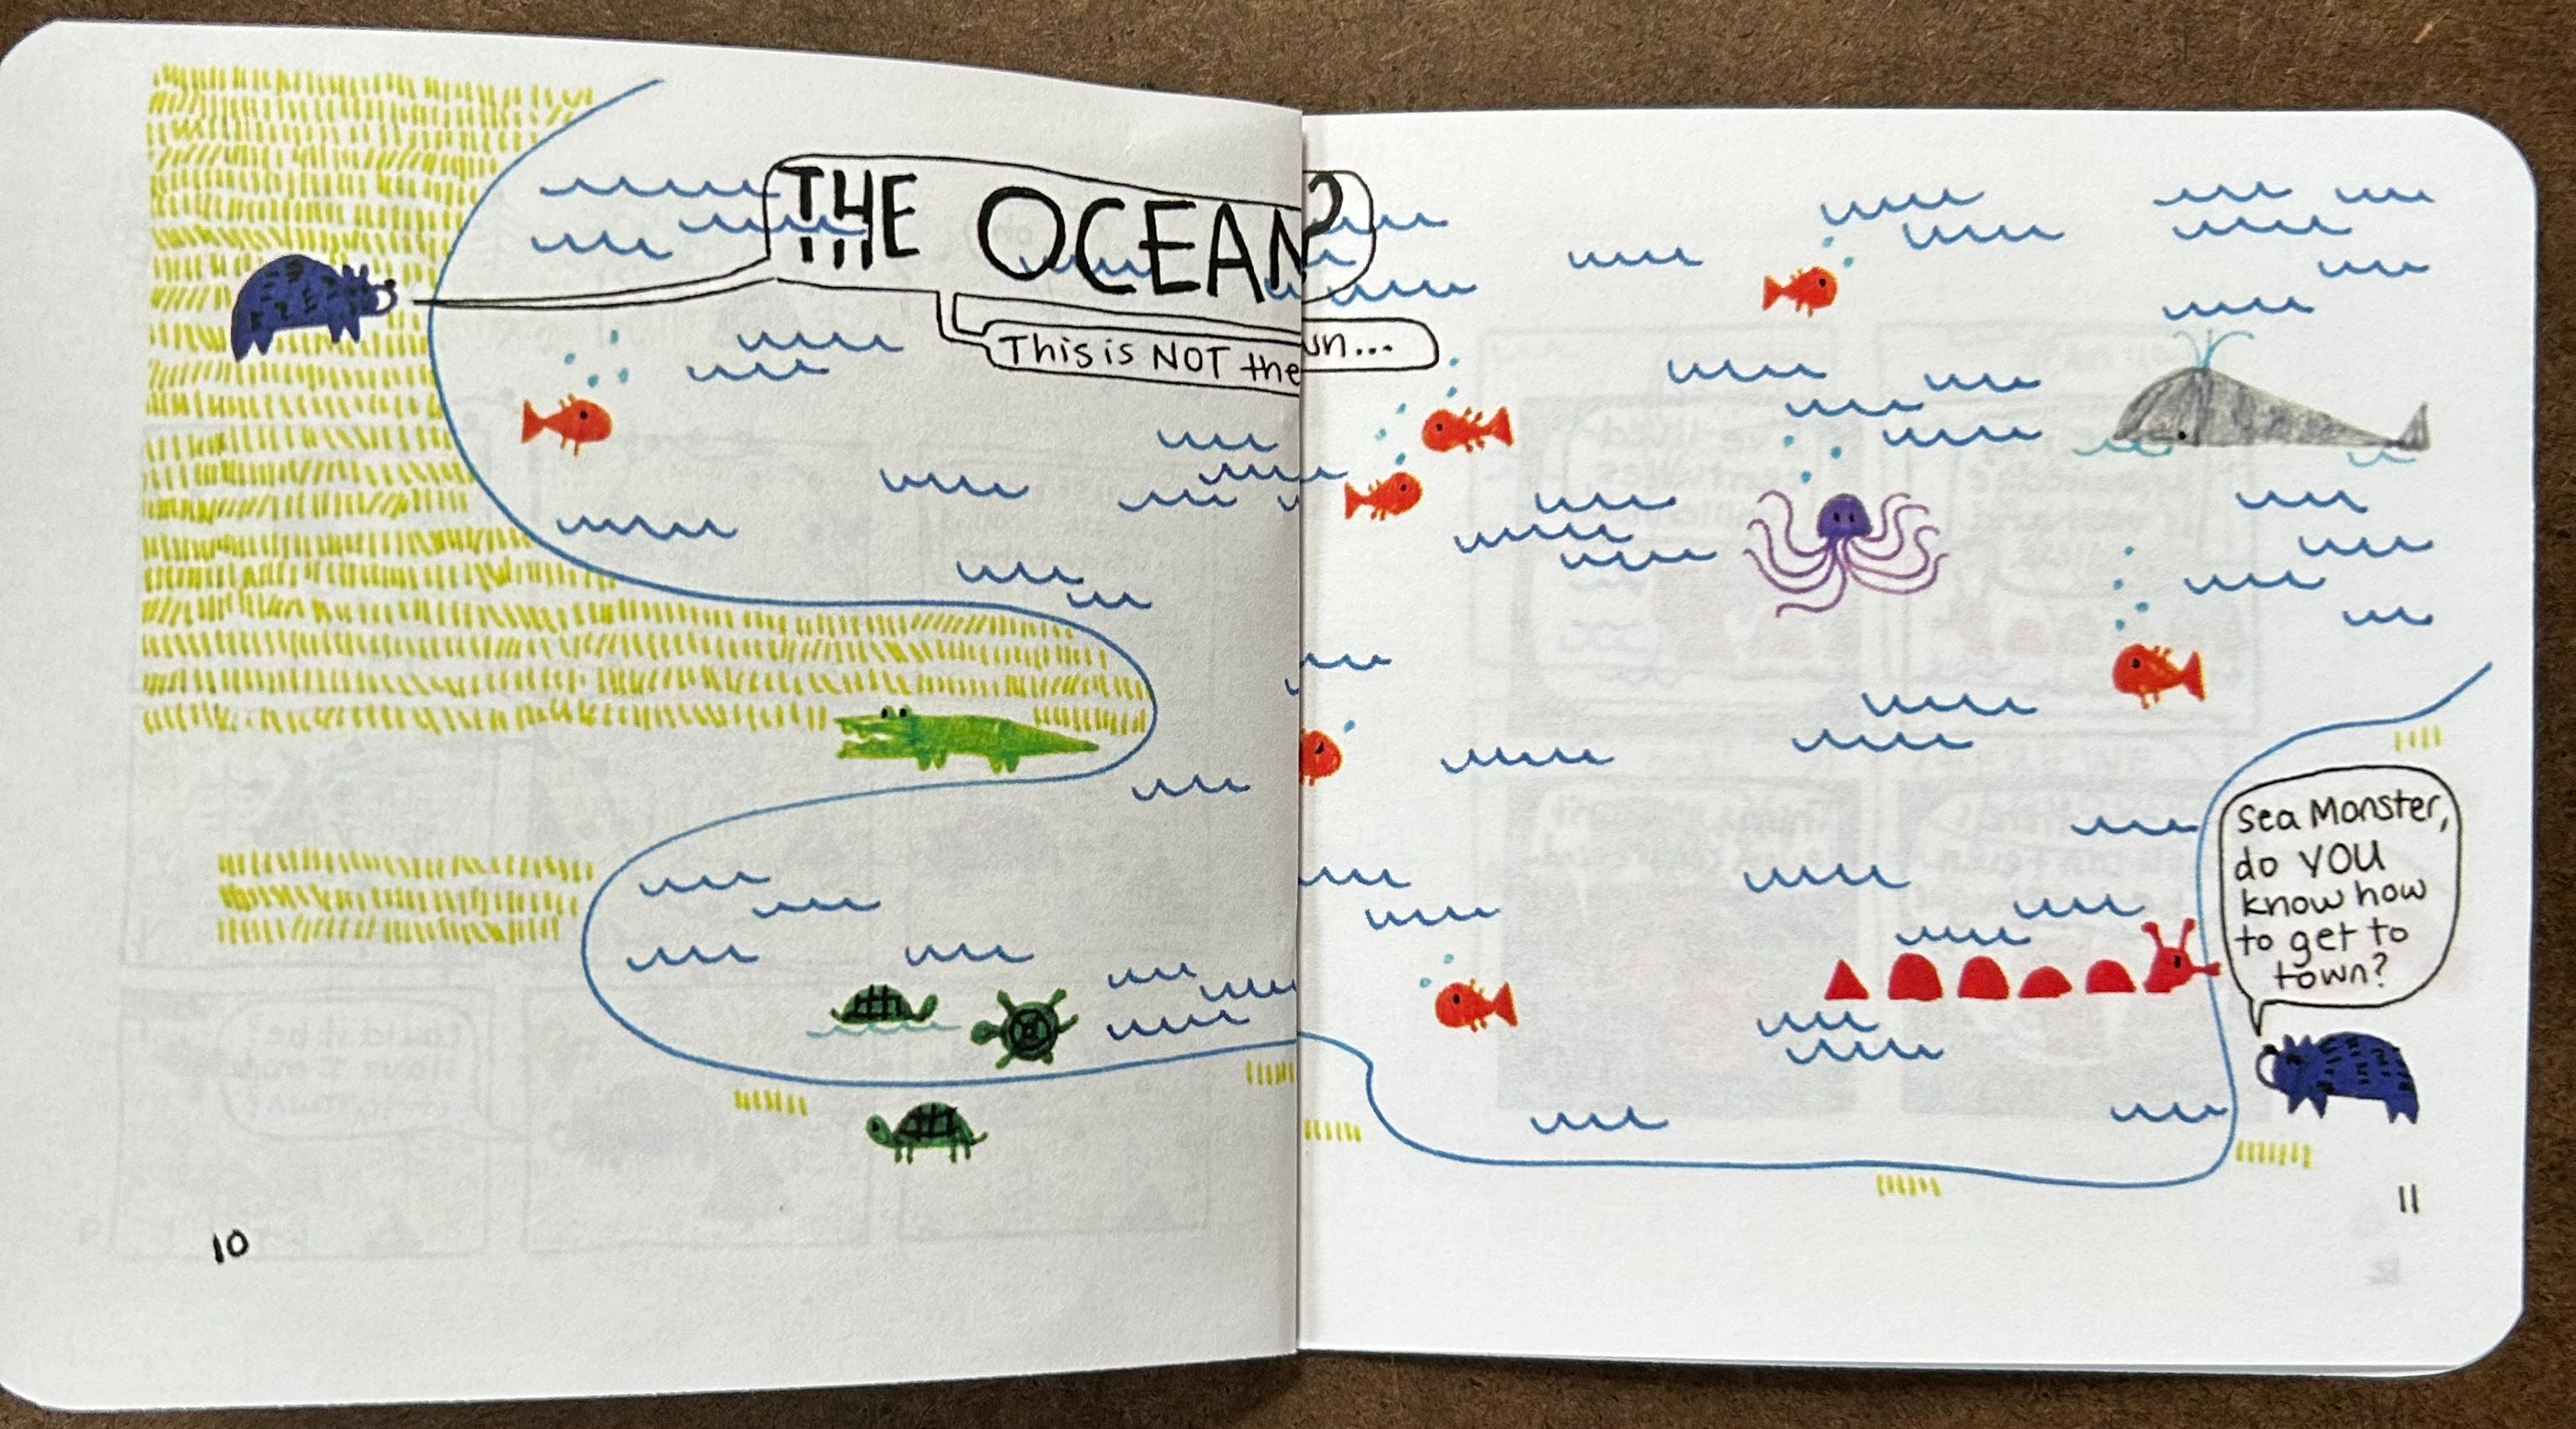 THE OCEAN?
This is NOT the
wn...
Sea Monster,
do YOU
know how
to get to
town?
10
11